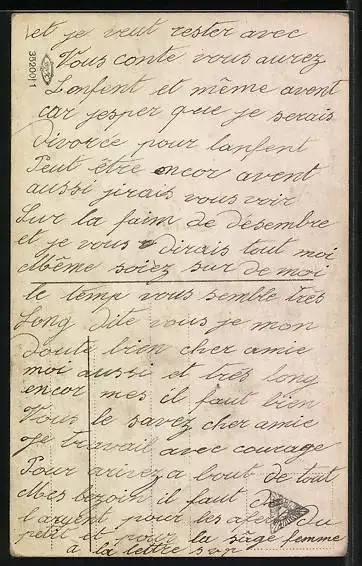 et je veut rester avec
Vous conte vous aurez
Lanfent et même avent
car jesper que je serais
divorcé pour lanfent
Peut être encor avent
aussi jirais vous voir
Sur la faim de désembre
et je vous dirais tout moi
Même soiez sur de moi
le temp vous semble très
Long dite vous je mon
doute bien cher amie
moi aussi et très long
encor mes il faut bien
Vous le savez cher amie
Je travail avec courage
Pour arivez a bout de tout
Mes bezoin il faut de
l'argent pour les afer du
petit et pour la sage femme
a la lettre
35200/1